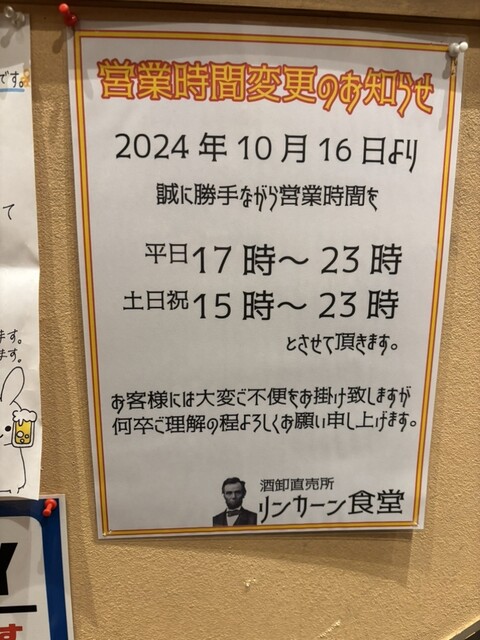 営業時間変更のお知らせ
2024年10月16日より
誠に勝手ながら営業時間を
平日17時～23時
土日祝15時～23時
とさせて頂きます。
お客様には大変ご不便をお掛け致しますが
何卒ご理解の程よろしくお願い申し上げます。
酒卸直売所
リンカーン食堂
です。
て
ます。
ます。
Y
す